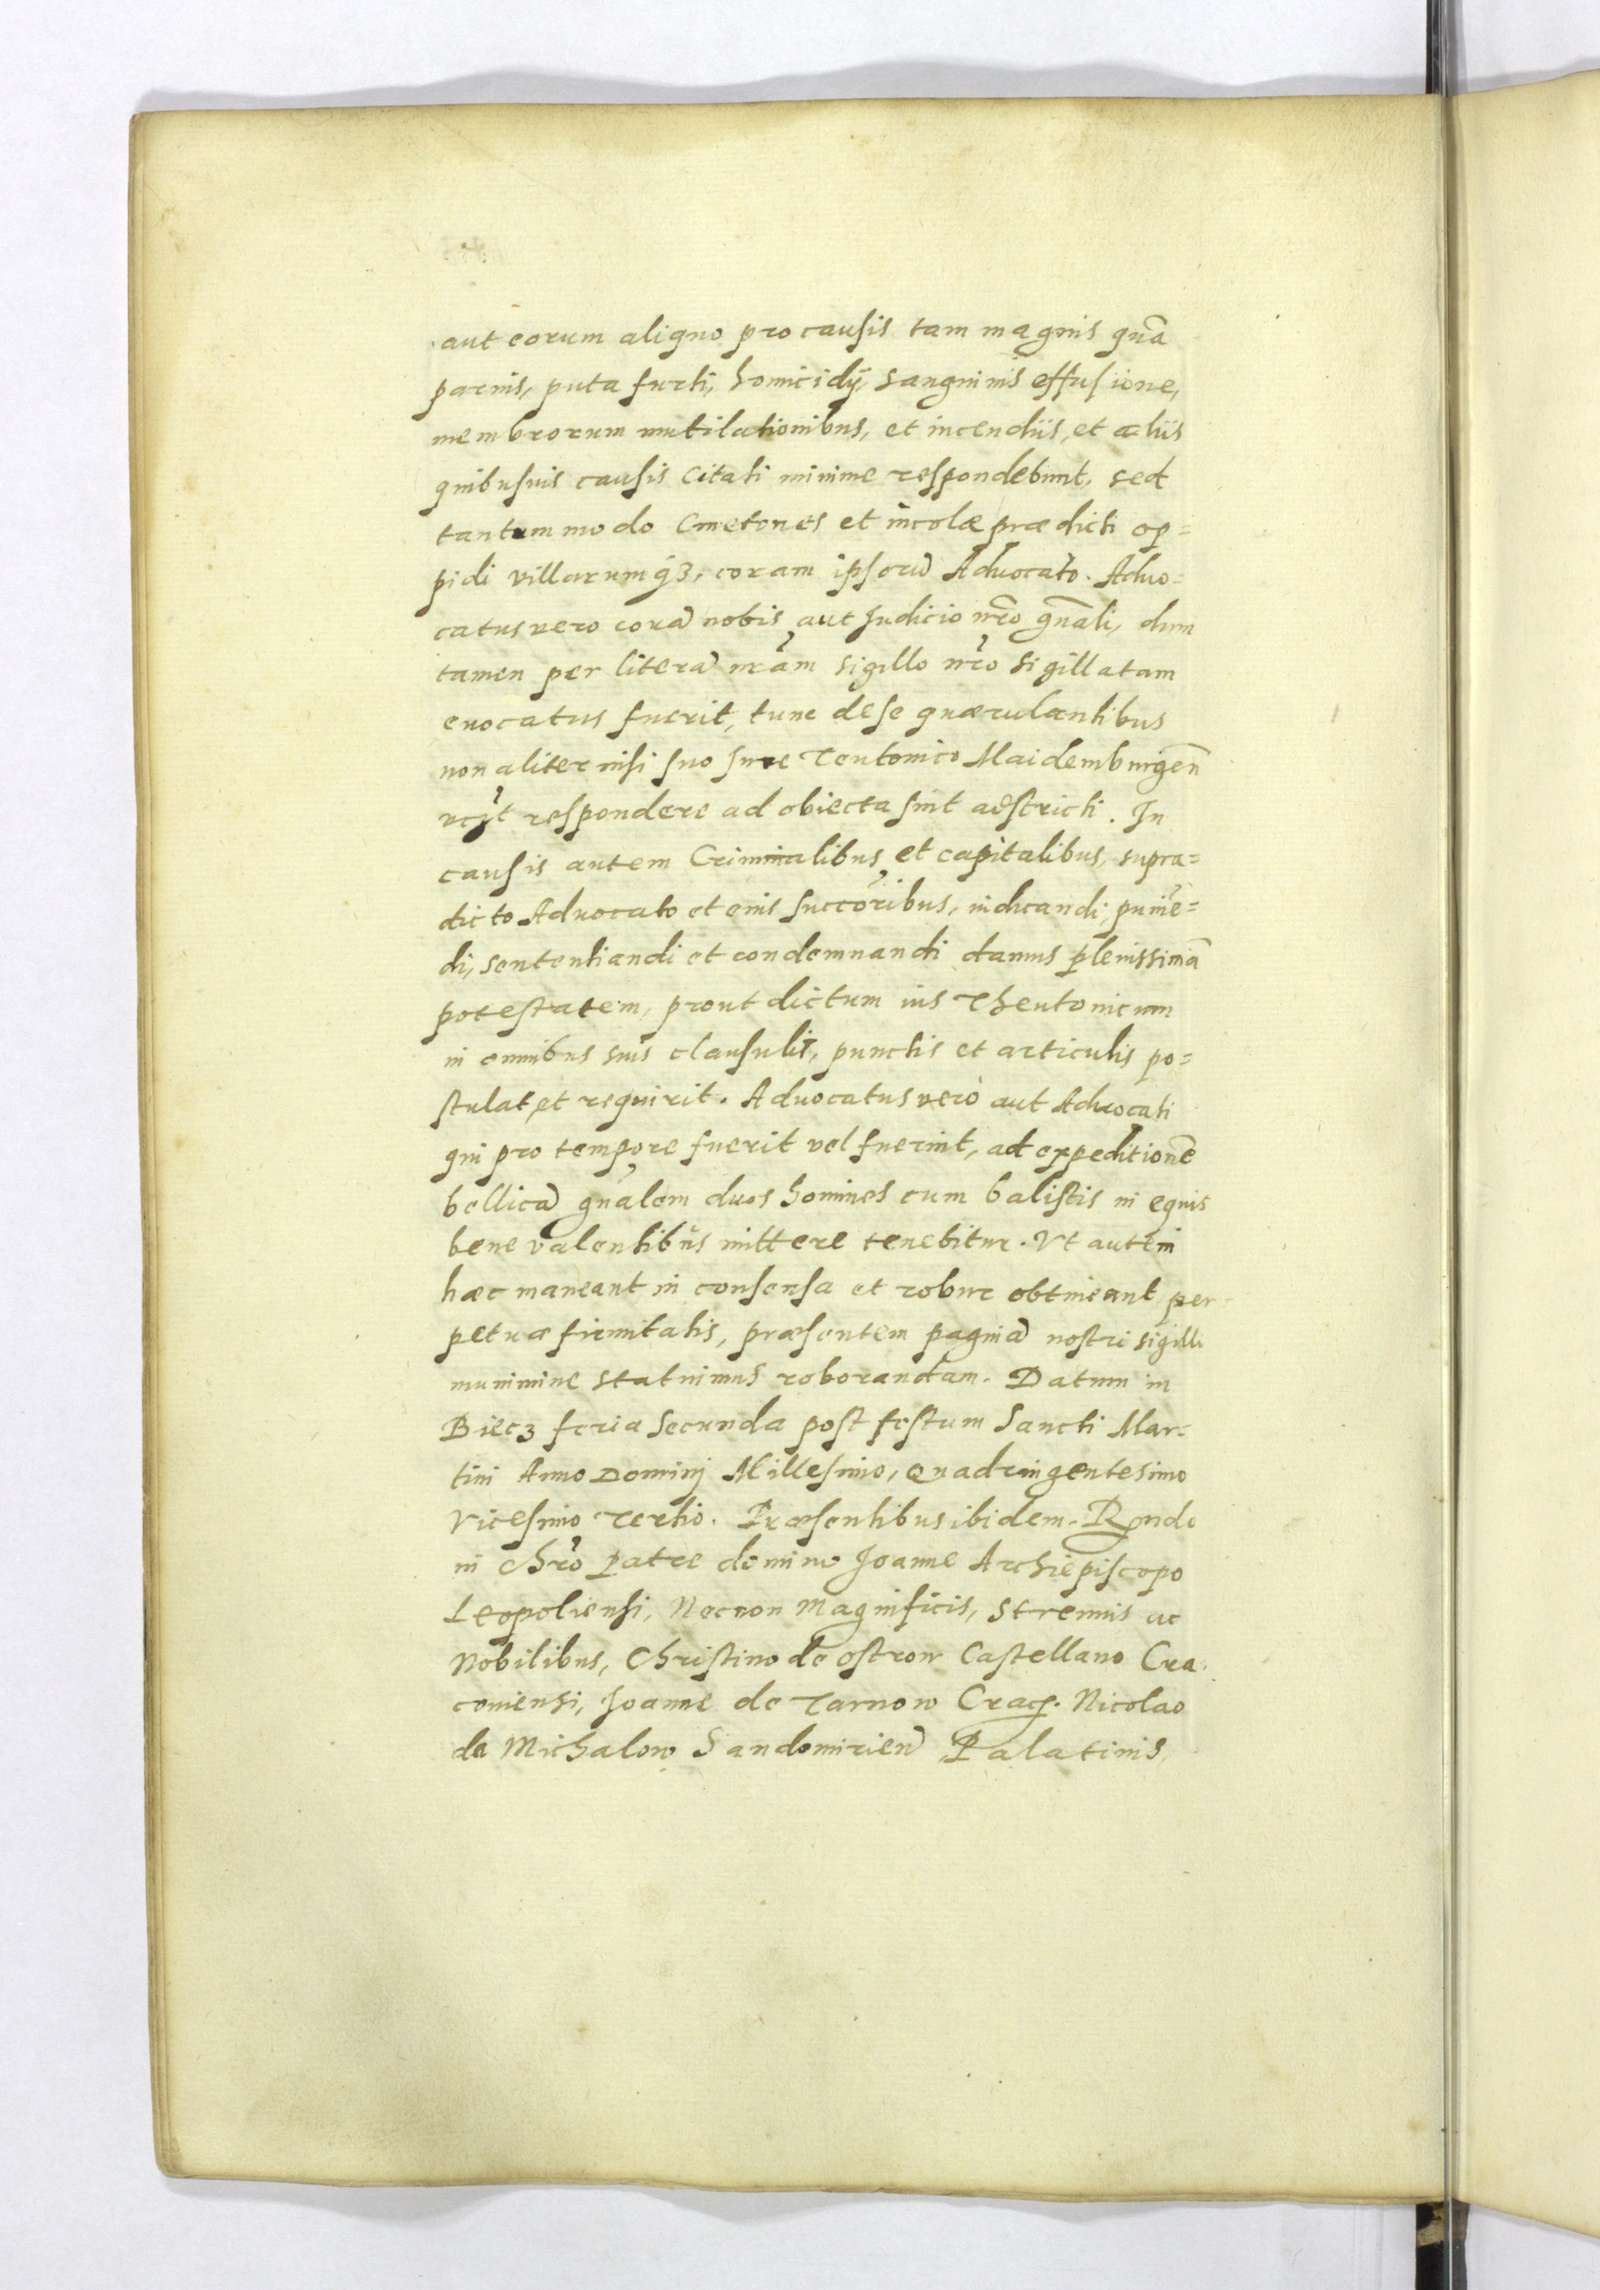 aut eorum aliquo pro causis tam magnis quā
paruis, puta furti, homicidij, sanguinis effusione,
membrorum mutilationibus, et incendiis, et aliis
quibusuis causis Citati minime respondebunt, sed
tantummodo Cmetones et incolæ prædicti op=
pidi villarumq3, coram ipsorū Aduocato. Aduo=
catus vero corā nobis aut Iudicio nr̄o gn̄ali, dum
tamen per literā nrām sigillo nr̄o sigillatam
euocatus fuerit, tunc de se quærulantibus
non aliter nisi suo Iure Teutonico Maidemburgen̄
vt respondere ad obiecta sint adstricti. In
causis autem Criminalibus, et capitalibus, supra=
dicto Aduocato et eius succōribus, iudicandi, puniē=
di, sententiandi et condemnandi damus plenissimā
potestatem, prout dictum ius Theutonicum
in omnibus suis clausulis, punctis et articulis po=
stulat, et requirit. Aduocatus verò aut Aduocati
qui pro tempore fuerit vel fuerint, ad expeditionē
bellicā gn̄alem duos homines cum balistis in equis
bene valentibus mittere tenebitur. Vt autem
hæc maneant in consensa et robur obtineant per=
petuæ firmitatis, præsentem paginā nostri sigilli
munimine statuimus roborandam. Datum in
Biecz feria Secunda post festum Sancti Mar=
tini Anno Dominj Millesimo, Quadringentesimo
Vicesimo Tertio. Præsentibus ibidem. Rṇdo
in Chrō patre domino Joanne Archiepiscopo
Leopoliensi, Necnon Magnificis, Strenuis ac
Nobilibus, Christino de Ostrow Castellano Cra=
couiensi, Joanne de Tarnow Crac. Nicolao
de Michalow Sandomirien̄ Palatinis,